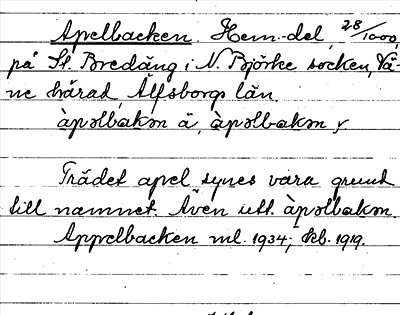 Apelbacken Hem.-del, 28/1000,
på St. Bredäng i N. Björke socken, Vä-
ne härad, Älfsborgs län.
àpəlbakən ä, àpəlbakən y
Trädet apel synes vara grund
till namnet. Även utt. àpəlbakən.
Appelbacken ml. 1934; kb. 1919.